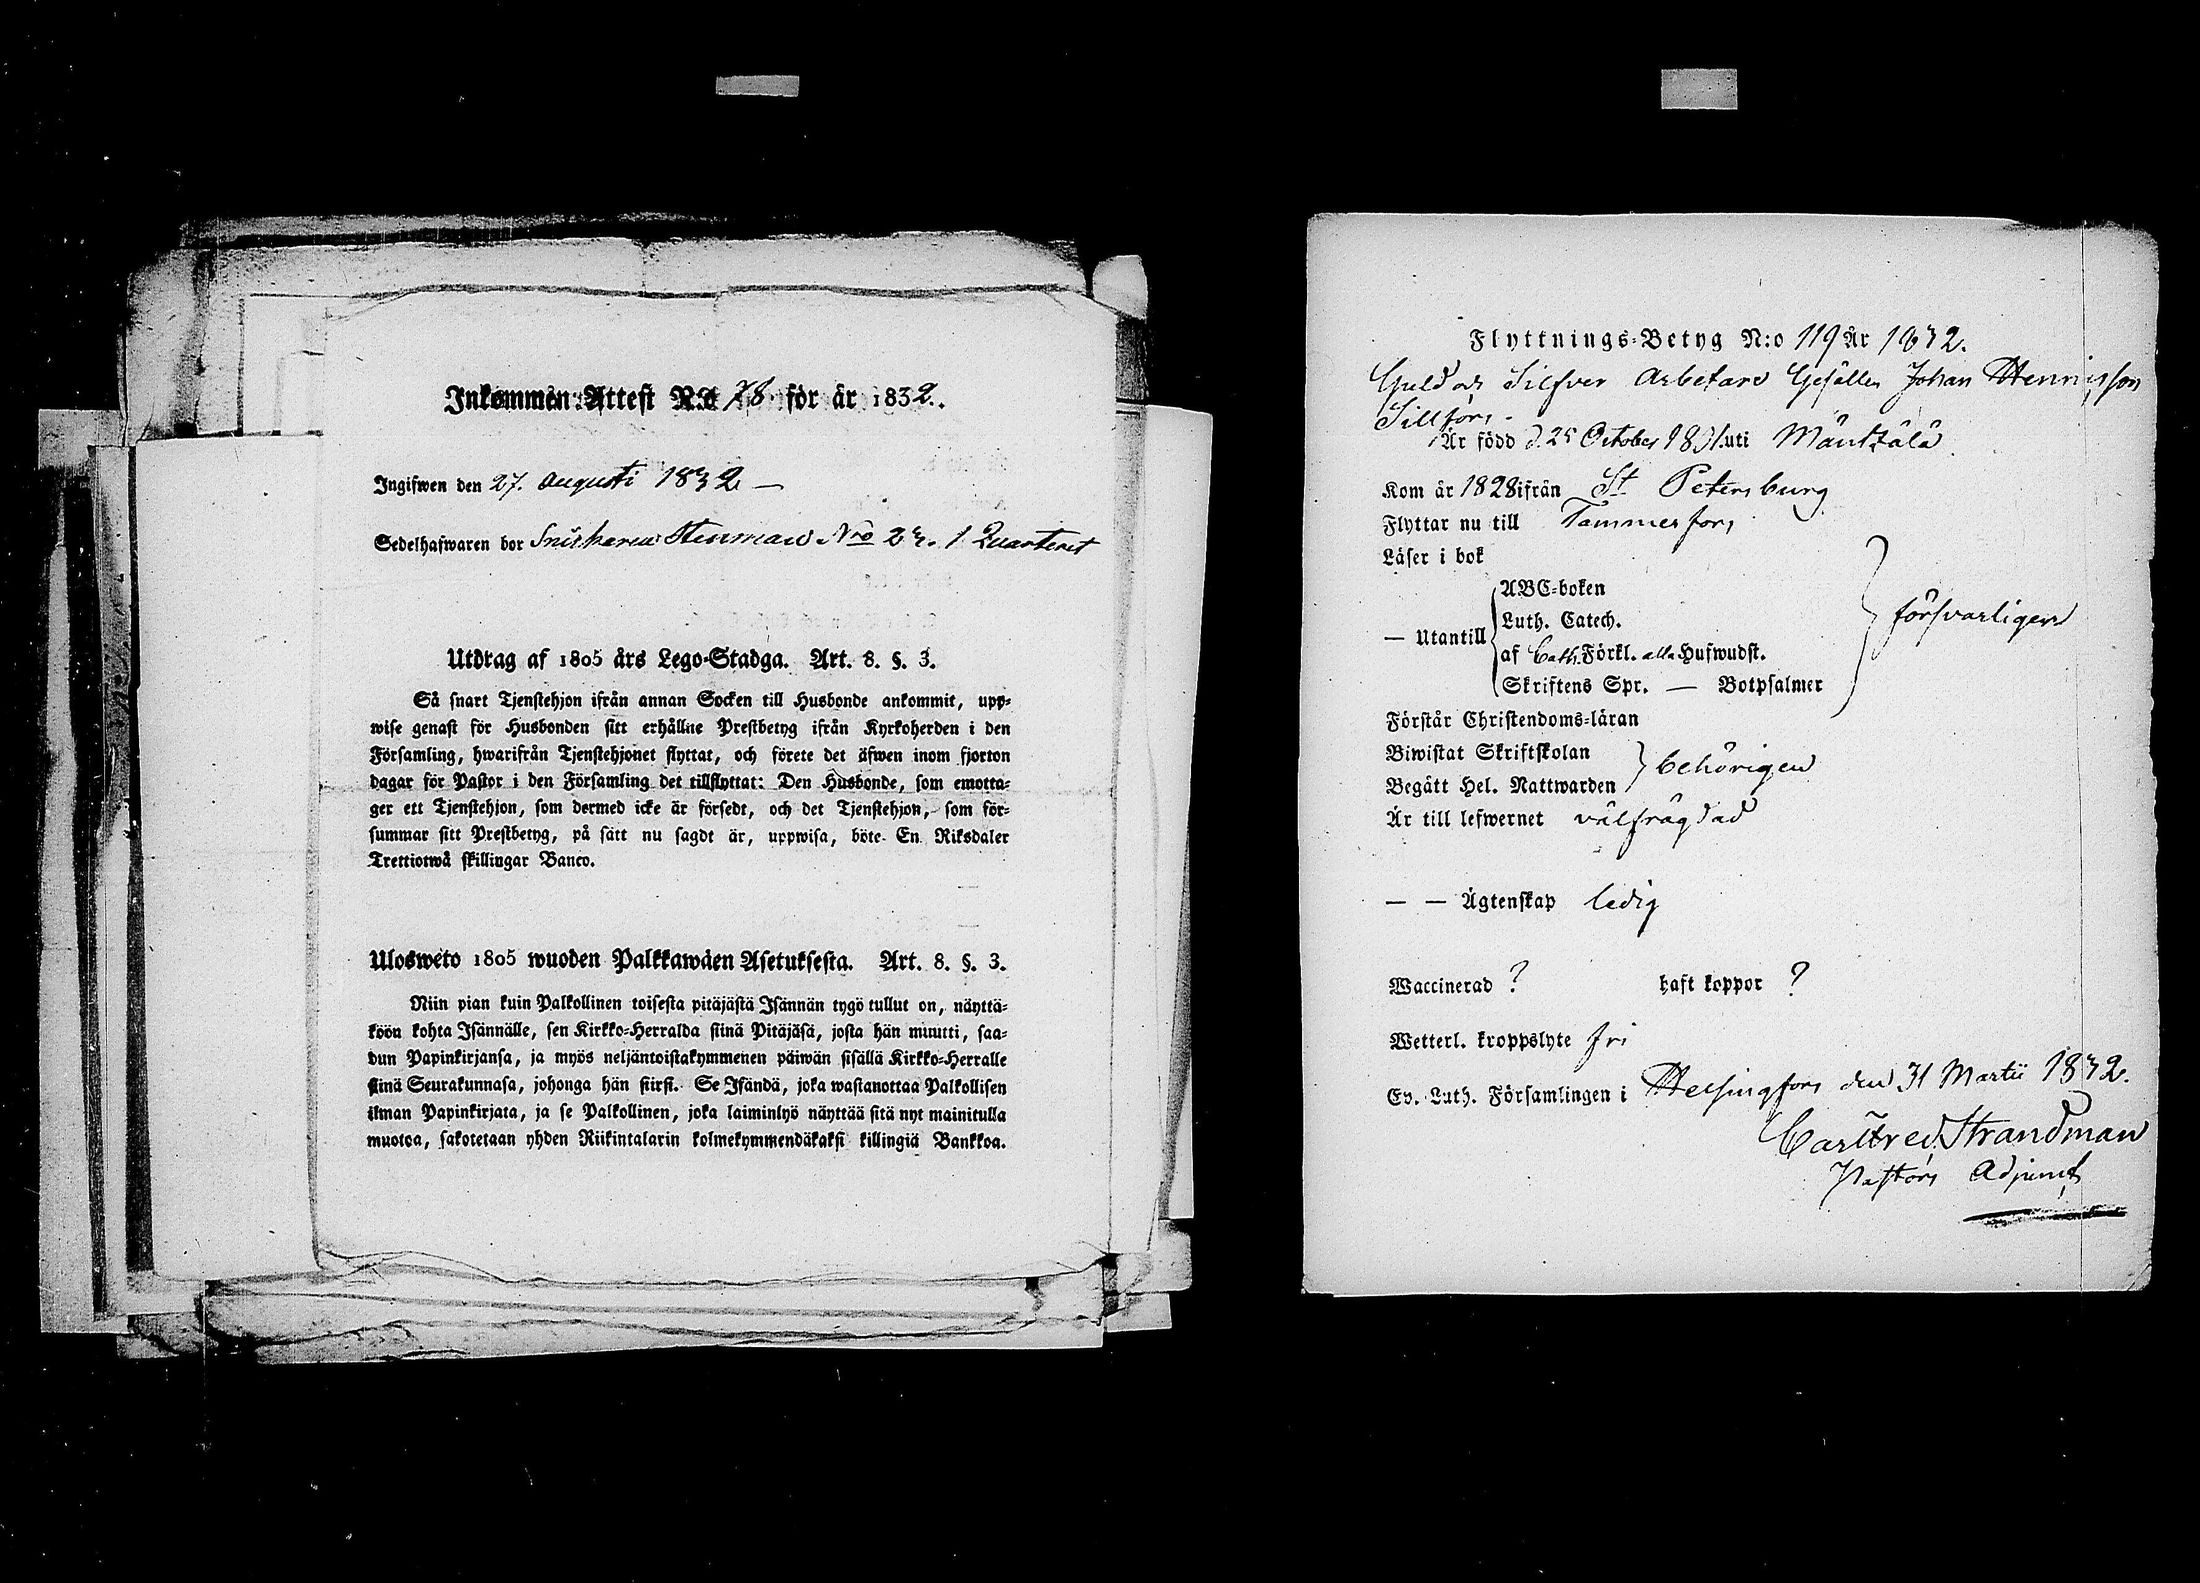 Inkommen Attest N:o 78 för år 1832.
Ingifwen den 27. augusti 1832 —
Sedelhafwaren bor Snickaren Stenman Nro 22. 1 Quarteret
Utdrag af 1805 års Lego-Stadga. Art. 8. §. 3.
Så snart Tjenstehjon ifrån annan Socken till Husbonde ankommit, upp-
wise genast för Husbonden sitt erhållne Prestbetyg ifrån Kyrkoherden i den
Församling, hwarifrån Tjenstehjonet flyttat, och förete det äfwen inom fjorton
dagar för Pastor i den Församling det tillflyttat: Den Husbonde, som emotta-
ger ett Tjenstehjon, som dermed icke är försedt, och det Tjenstehjon, som för-
summar sitt Prestbetyg, på sätt nu sagdt är, uppwisa, böte En Riksdaler
Trettiotwå skillingar Banco.
Ulosweto 1805 wuoden Palkkawäen Asetuksesta. Art. 8. §. 3.
Niin pian kuin Palkollinen toisesta pitäjästä Isännän tygö tullut on, näyttä-
köön kohta Isännälle, sen Kirkko-Herralda siinä Pitäjäsä, josta hän muutti, saa-
dun Papinkirjansa, ja myös neljäntoistakymmenen päiwän sisällä Kirkko-Herralle
siinä Seurakunnasa, johonga hän siirsi. Se Isändä, joka wastanottaa Palkollisen
ilman Papinkirjata, ja se Palkollinen, joka laiminlyö näyttää sitä nyt mainitulla
muotoa, sakotetaan yhden Riikintalarin kolmekymmendäkaksi killingiä Bankkoa.
Flyttnings-Betyg N:o 119 År 1832.
Guld och Silfver Arbetare Gesällen Johan Henricsson
Sillfors
Är född d. 25 October 1801 uti Mäntzälä
Kom år 1828 ifrån St Petersburg
Flyttar nu till Tammerfors
Läser i bok
— Utantill
ABC-boken
Luth. Catech.
af Cath. Förkl. alla Hufwudst.
Skriftens Spr. — Botpsalmer
försvarligen
Förstår Christendoms-läran
Biwistat Skriftskolan
Begått Hel. Nattwarden
behörigen
Är till lefwernet välfrägdad
— — Ägtenskap ledig
Waccinerad ? haft koppor ?
Wetterl. kroppslyte fri
Ev. Luth. Församlingen i Helsingfors den 31 Martii 1832.
Carl Fred. Strandman
Pastors Adjunct